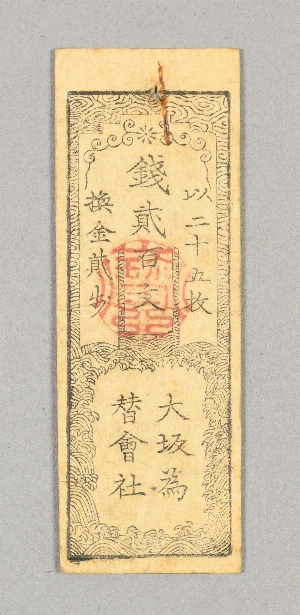 以二十五枚
錢貳百文
換金貳步
大坂為
替會社